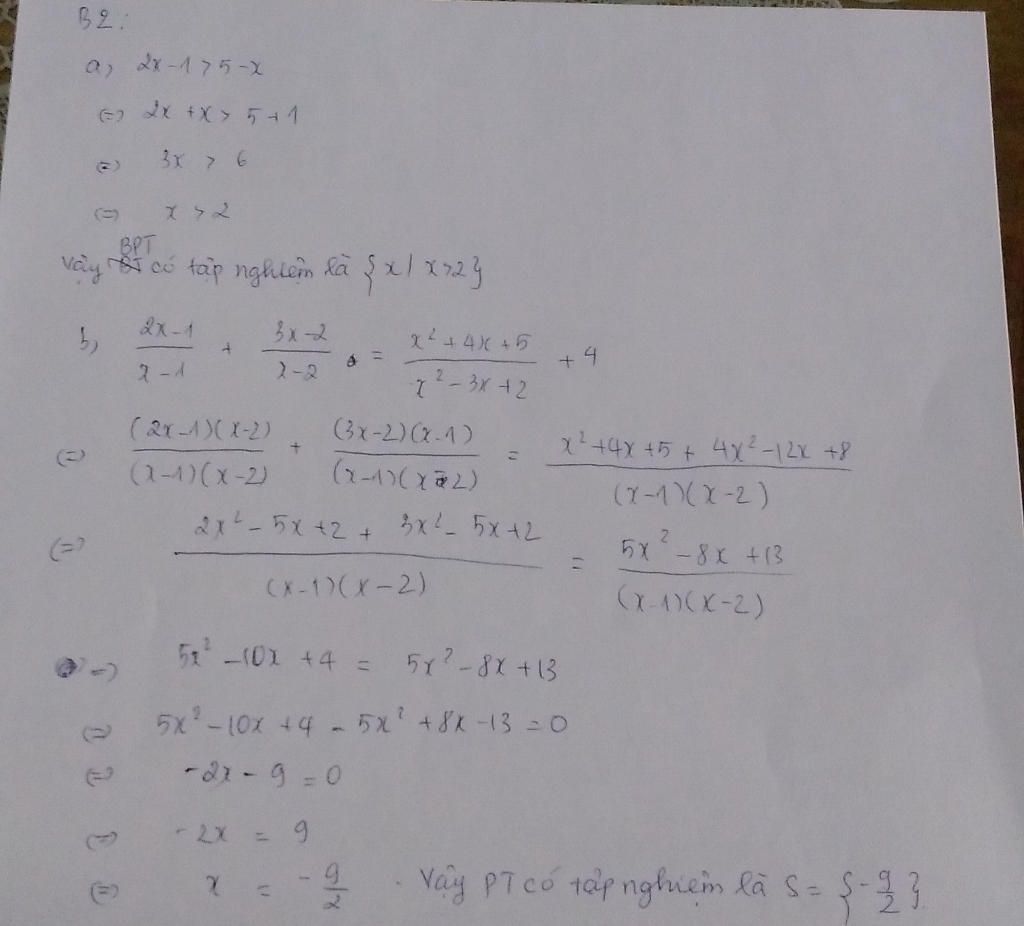 B2:
a, 2x-1 > 5-x
(=) 2x + x > 5+1
(=) 3x > 6
(=) x > 2
Vậy BPT có tập nghiệm là {x | x>2}
b, \frac{2x-1}{x-1} + \frac{3x-2}{x-2} = \frac{x²+4x+5}{x²-3x+2} + 4
(=) \frac{(2x-1)(x-2)}{(x-1)(x-2)} + \frac{(3x-2)(x-1)}{(x-1)(x-2)} = \frac{x²+4x+5+4x²-12x+8}{(x-1)(x-2)}
(=) \frac{2x²-5x+2+3x²-5x+2}{(x-1)(x-2)} = \frac{5x²-8x+13}{(x-1)(x-2)}
=) 5x²-10x+4 = 5x²-8x+13
(=) 5x²-10x+4-5x²+8x-13=0
(=) -2x-9=0
(=) -2x = 9
(=) x = -\frac{9}{2}. Vậy PT có tập nghiệm là S = {-\frac{9}{2}}